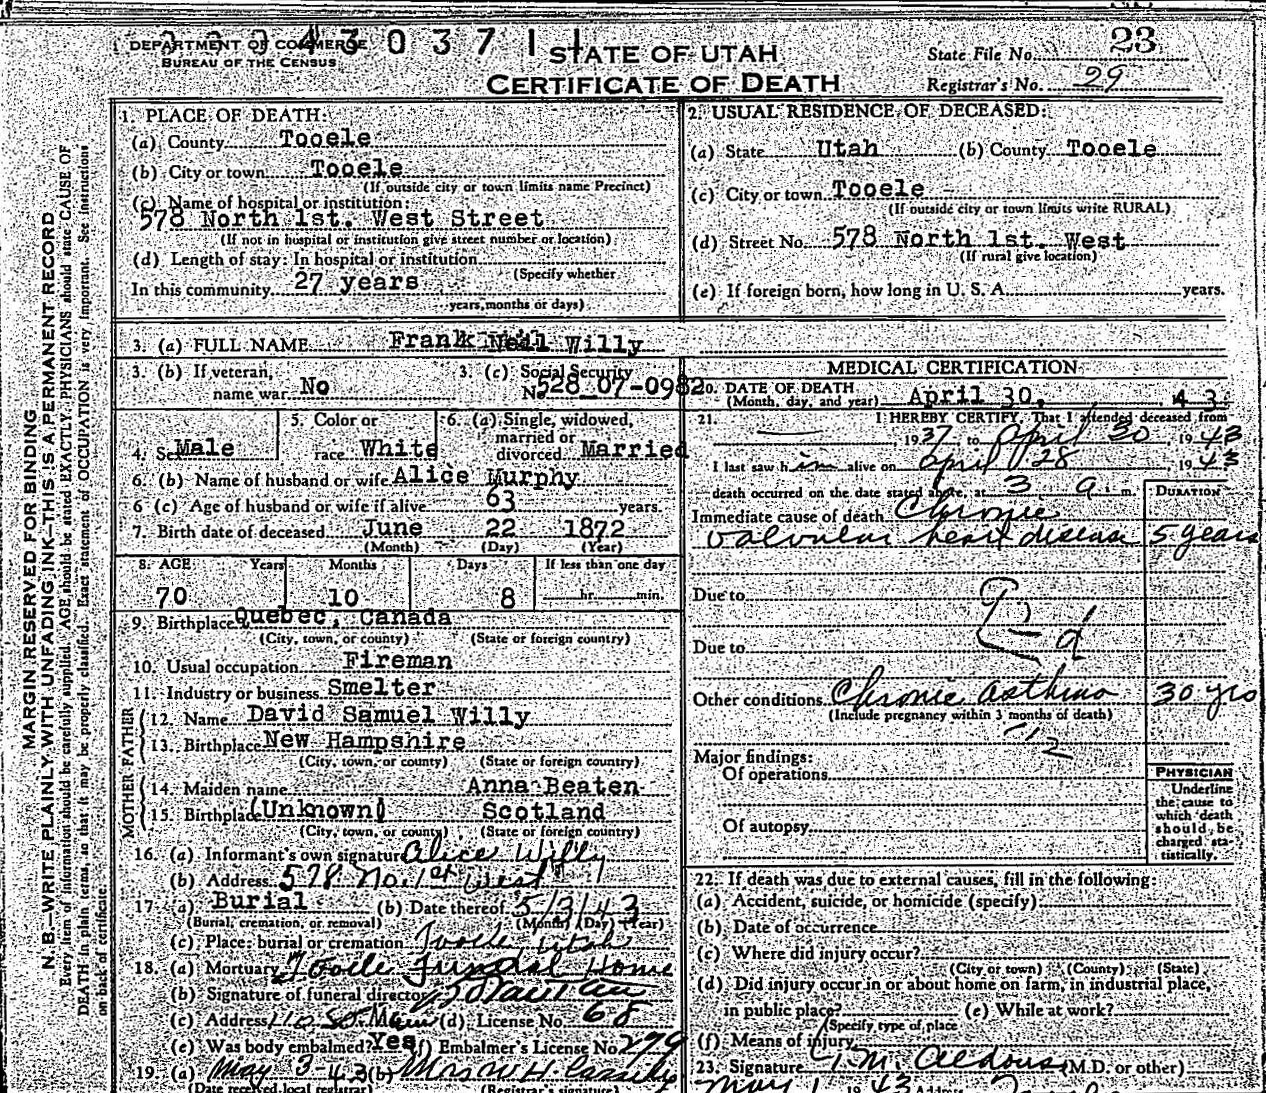 DEPARTMENT OF COMMERCE
BUREAU OF THE CENSUS
4 3 0 3 7 1 1
STATE OF UTAH
CERTIFICATE OF DEATH
State File No. 23
Registrar's No. 29
MARGIN RESERVED FOR BINDING
N. B.—WRITE PLAINLY WITH UNFADING INK—THIS IS A PERMANENT RECORD
Every item of information should be carefully supplied. AGE should be stated EXACTLY. PHYSICIANS should state CAUSE OF
DEATH in plain terms, so that it may be properly classified. Exact statement of OCCUPATION is very important. See instructions
on back of certificate.
1. PLACE OF DEATH:
(a) County Tooele
(b) City or town Tooele
(If outside city or town limits name Precinct)
(c) Name of hospital or institution:
578 North 1st. West Street
(If not in hospital or institution give street number or location)
(d) Length of stay: In hospital or institution
(Specify whether
In this community 27 years
years, months or days)
2. USUAL RESIDENCE OF DECEASED:
(a) State Utah (b) County Tooele
(c) City or town Tooele
(If outside city or town limits write RURAL)
(d) Street No. 578 North 1st. West
(If rural give location)
(e) If foreign born, how long in U. S. A. years.
3. (a) FULL NAME Frank Neil Willy
3. (b) If veteran, name war No
3. (c) Social Security No. 528 07-0982
4. Sex Male
5. Color or race White
6. (a) Single, widowed, married or divorced Married
6. (b) Name of husband or wife Alice Murphy
6 (c) Age of husband or wife if alive 63 years.
7. Birth date of deceased June 22 1872
(Month) (Day) (Year)
8. AGE Years Months Days If less than one day
70 10 8 hr. min.
9. Birthplace Quebec, Canada
(City, town, or county) (State or foreign country)
10. Usual occupation Fireman
11. Industry or business Smelter
FATHER
12. Name David Samuel Willy
13. Birthplace New Hampshire
(City, town, or county) (State or foreign country)
MOTHER
14. Maiden name Anna Beaten
15. Birthplace (Unknown) Scotland
(City, town, or county) (State or foreign country)
16. (a) Informant's own signature Alice Willy
(b) Address 578 No. 1st West
17. (a) Burial (b) Date thereof 5/3/43
(Burial, cremation, or removal) (Month) (Day) (Year)
(c) Place: burial or cremation Tooele Utah
18. (a) Mortuary Tooele Funeral Home
(b) Signature of funeral director
(c) Address 110 So. Main (d) License No. 68
(e) Was body embalmed? Yes (f) Embalmer's License No. 279
19. (a) May 3-43 (b) Mrs W H Cassity
(Date received local registrar) (Registrar's signature)
MEDICAL CERTIFICATION
20. DATE OF DEATH
(Month, day, and year) April 30, 43.
21. I HEREBY CERTIFY, That I attended deceased from
1937 to April 30, 1943
I last saw him alive on April 28, 1943
death occurred on the date stated above, at 3 a. m.
DURATION
Immediate cause of death Chronic
valvular heart disease 5 years
Due to
Due to
Other conditions Chronic asthma 30 yrs
(Include pregnancy within 3 months of death)
112
Major findings:
Of operations
Of autopsy
PHYSICIAN
Underline
the cause to
which death
should be
charged sta-
tistically.
22. If death was due to external causes, fill in the following:
(a) Accident, suicide, or homicide (specify)
(b) Date of occurrence
(c) Where did injury occur?
(City or town) (County) (State)
(d) Did injury occur in or about home on farm, in industrial place,
in public place? (e) While at work?
(Specify type of place
(f) Means of injury
23. Signature T. M. Aldous (M.D. or other)
May 1 1943 Address Tooele